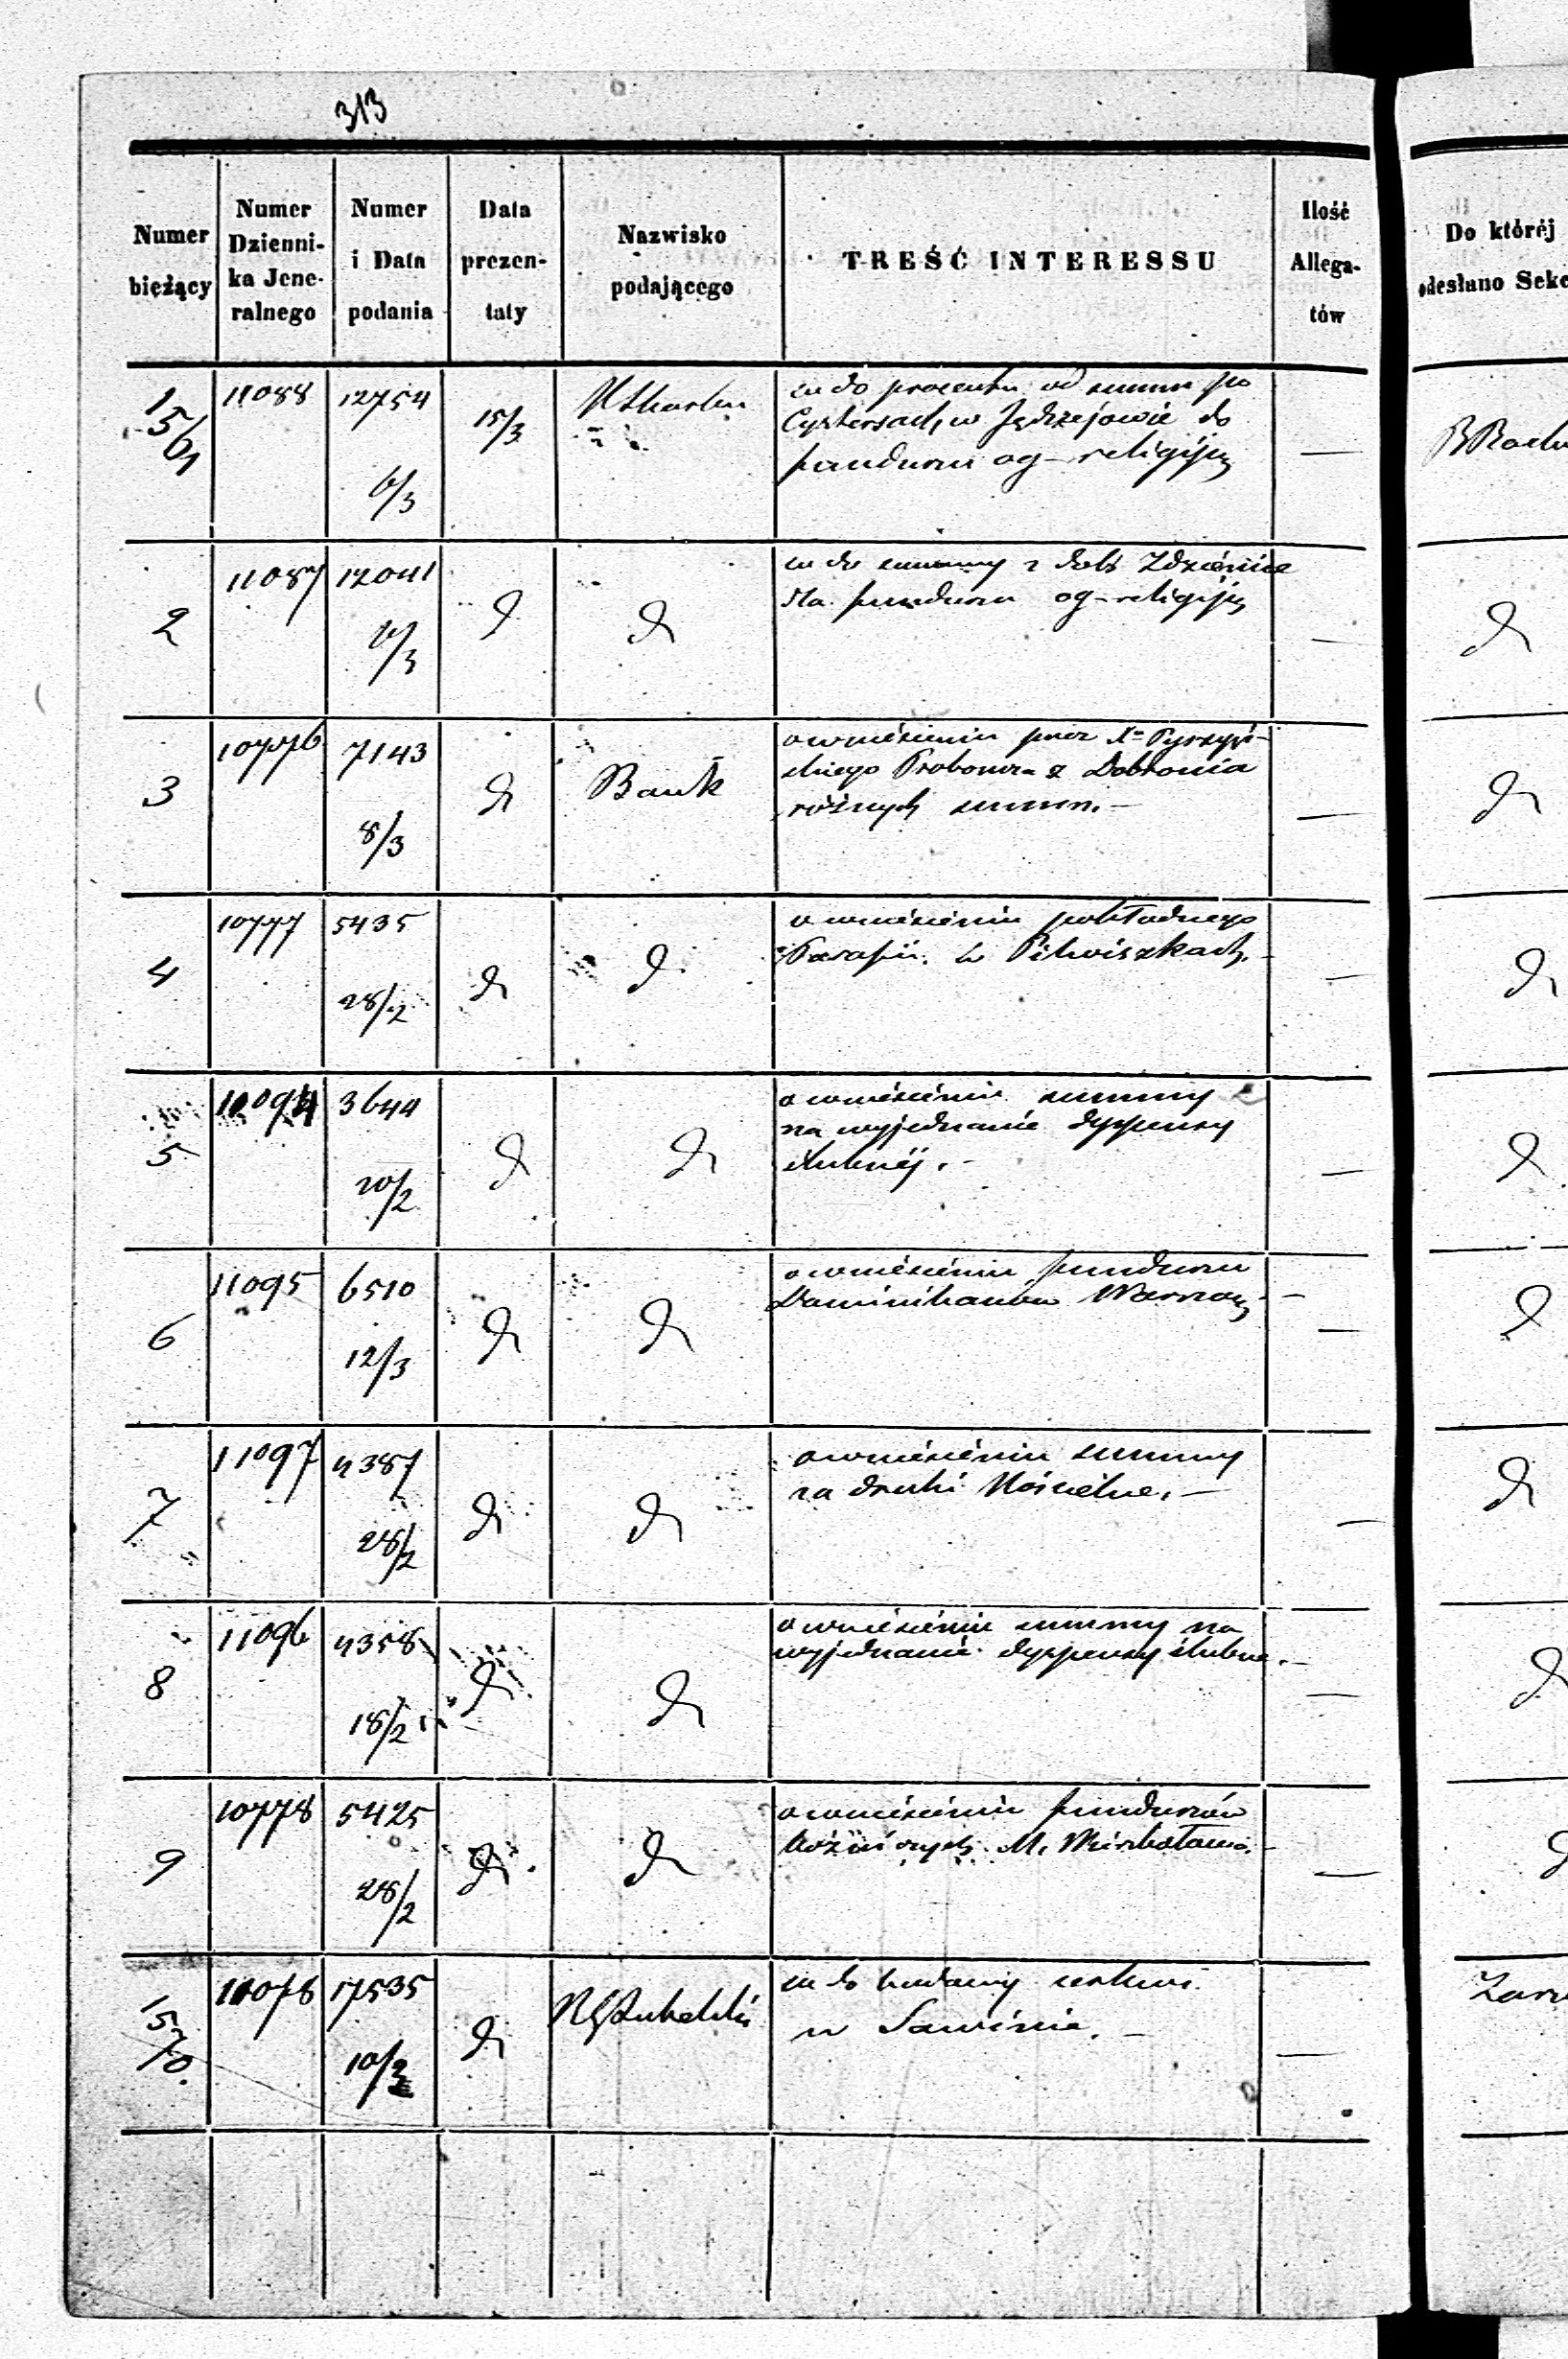 313
Numer bieżący | Numer Dzienni- ka Jene- ralnego | Numer i Data podania | Data prezen- taty | Nazwisko podającego | TREŚĆ INTERESSU | Ilość Allega- tów | Do któréj odesłano Sekc
156 1 | 11088 | 12754 6/3 | 15/3 | K Skarbu | co do procentu od summ po
Cystersach w Jędrzejowie do
funduszu og-religijn | —
2 | 11087 | 12041 6/3 | d | d | co do summy z dóbr
dla funduszu og-religijn | — | d
3 | 10776 | 7143 8/3 | d | Bank | o wniesieniu przez Xa
skiego Proboszcza z Dobronia
różnych summ. — | — | d
4 | 10777 | 5435 28/2 | d | d | o wniesieniu pokładnego
Parafii w Pilwiszkach. | — | d
5 | 11094 | 3644 20/2 | d | d | o wniesieniu summy
na wyjednanie dyspensy
ślubnéj. - | — | d
6 | 11095 | 6510 12/3 | d | d | o wniesieniu funduszu
Dominikanów Warszaw | — | d
7 | 11097 | 4387 28/2 | d | d | o wniesieniu summy
za druki Kościelne. — | — | d
8 | 11096 | 4358 18/2 | d | d | o wniesieniu summy na
wyjednanie dyspensy ślubne. — | — | d
9 | 10778 | 5425 28/2 | d | d | o wniesieniu funduszów
M. | — | d
1570. | 11078 | 17535 10/3 | d | RG Lubelski | co do budowy cerkwi
w Sawinie. — | —